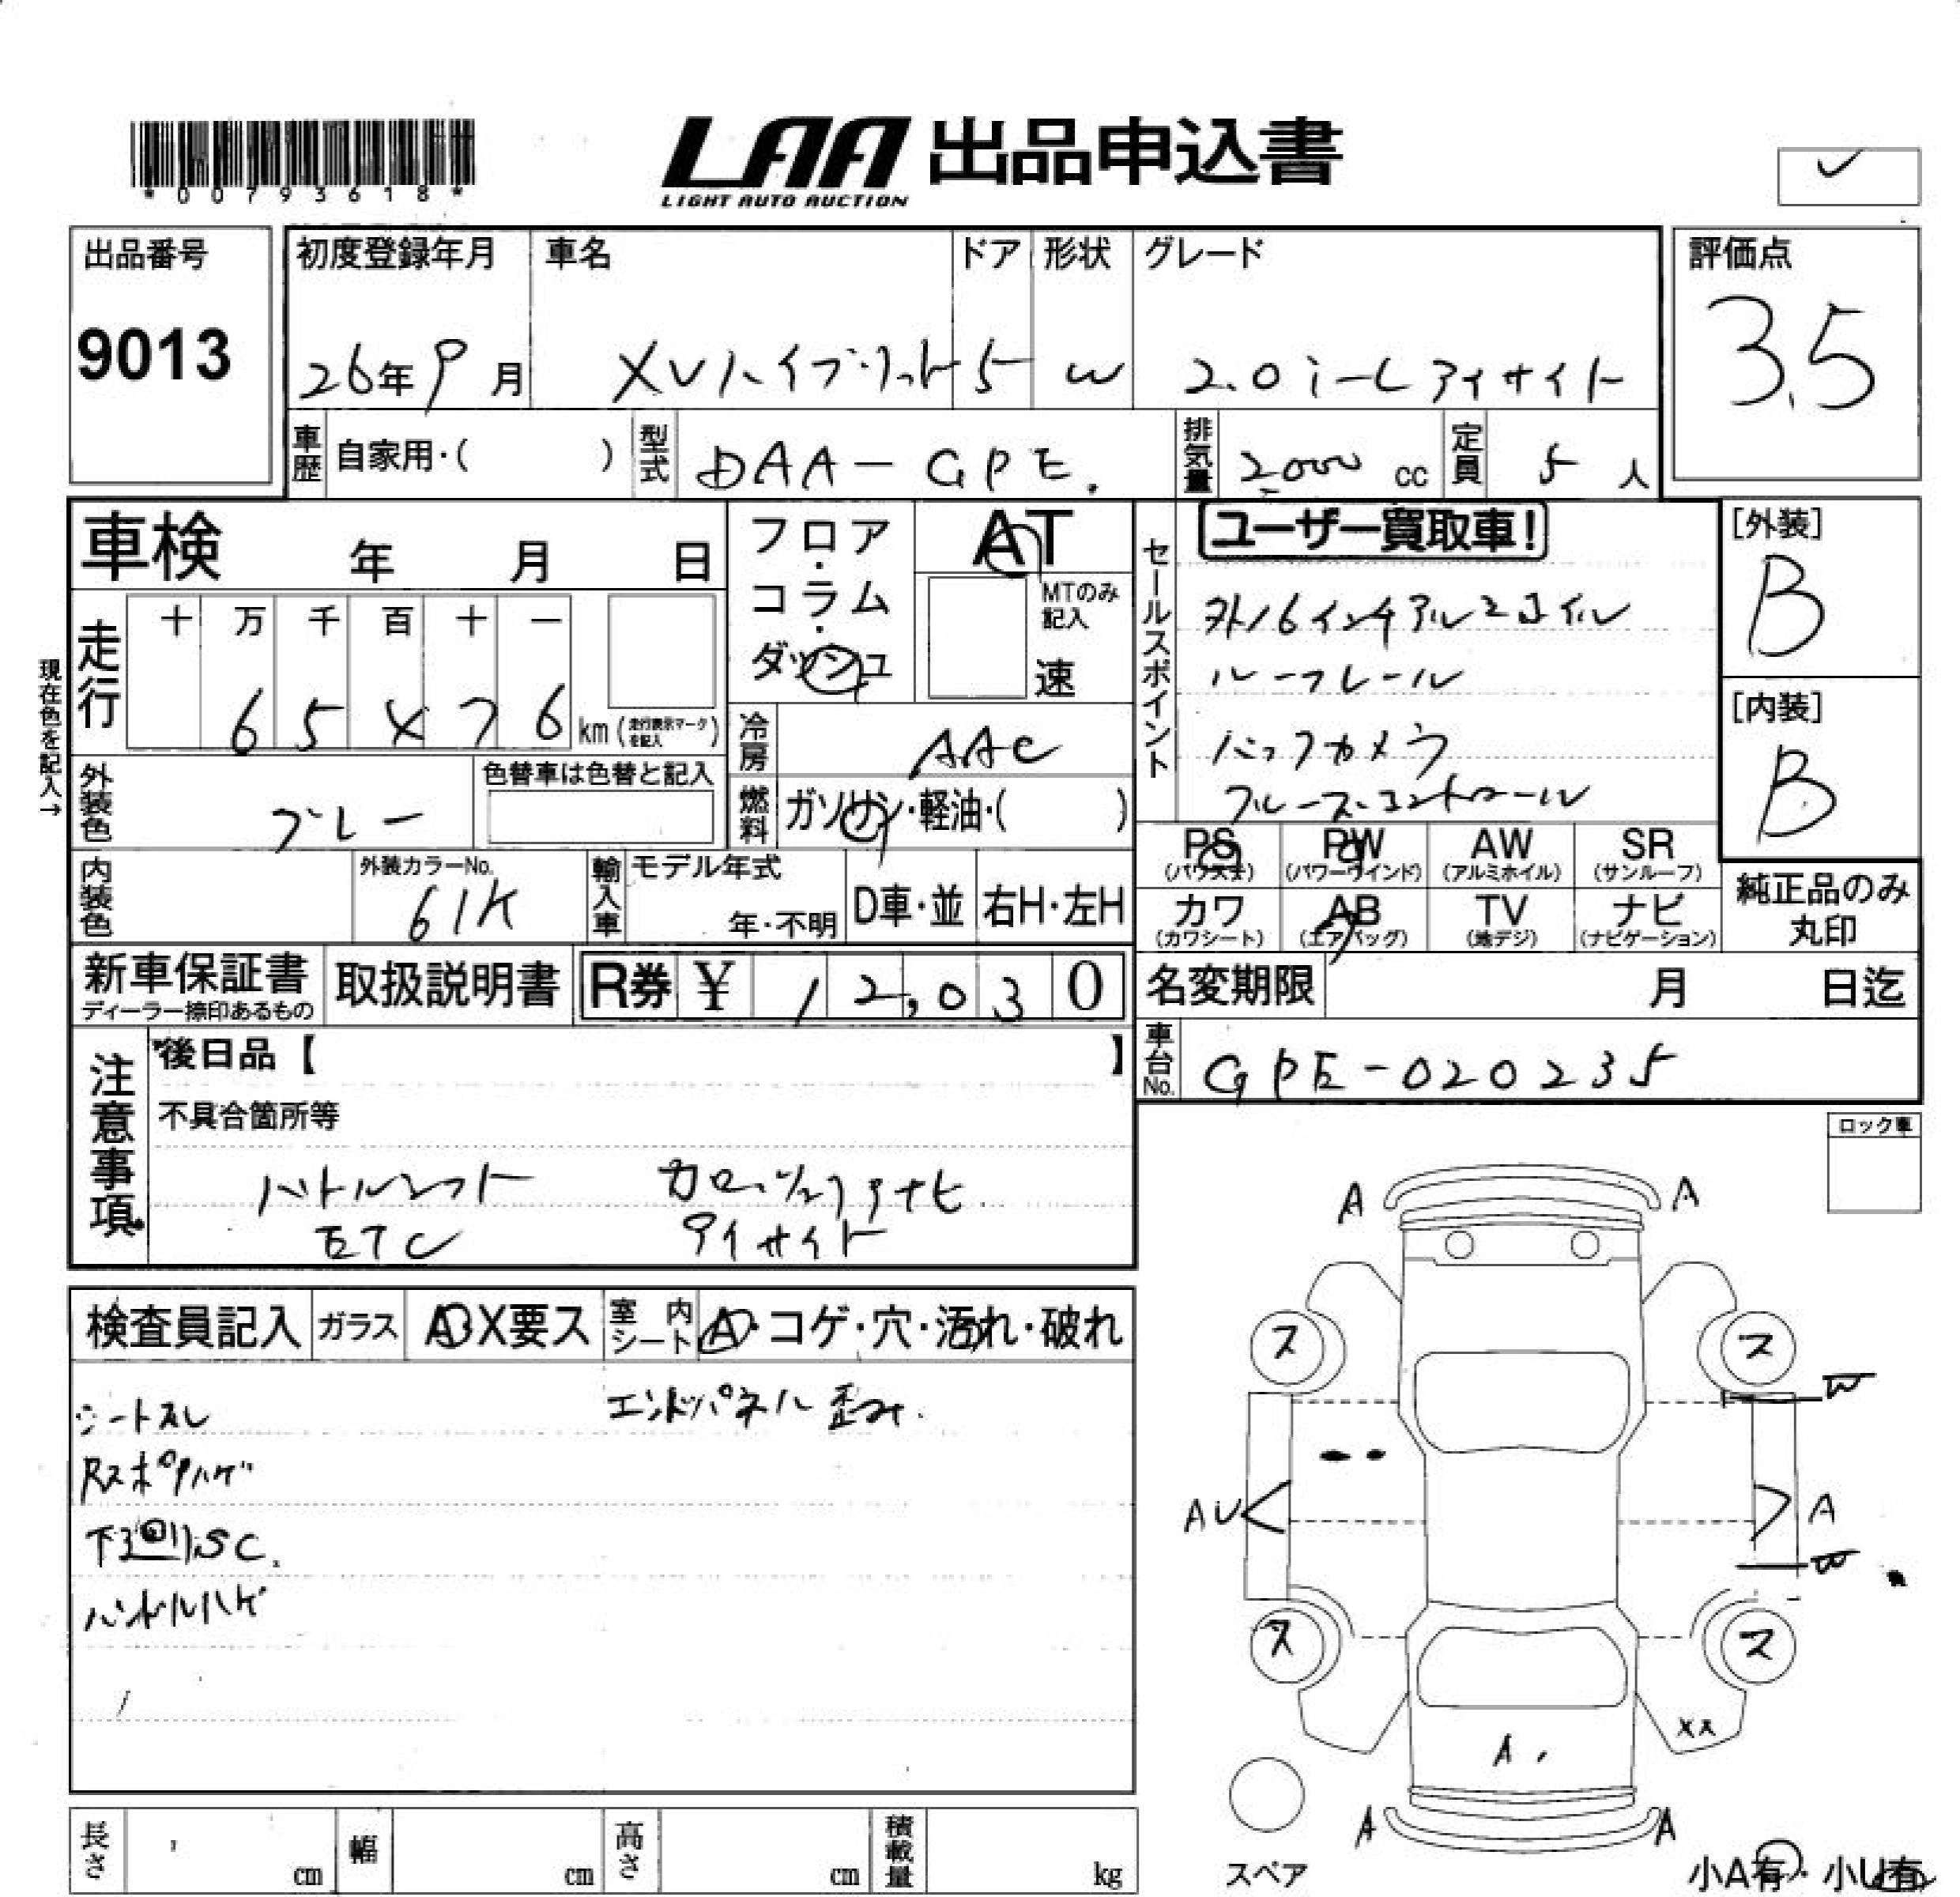 *00793618*
LAA 出品申込書
LIGHT AUTO AUCTION
出品番号
9013
初度登録年月
26年9月
車名
XVハイブリット
ドア
5
形状
W
グレード
2.0i-L アイサイト
評価点
3.5
車歴 自家用・( )
型式 DAA-GPE.
排気量 2000 cc
定員 5 人
車検 年 月 日
フロア・コラム・ダッシュ
AT
MTのみ記入
速
セールスポイント
ユーザー買取車!
外16インチアルミホイル
ルーフレール
バックカメラ
クルーズコントロール
[外装]
B
[内装]
B
現在色を記入→
走行
十 万 千 百 十 一
6 5 X 7 6 km (走行表示マークを記入)
冷房 AAC
外装色 グレー
色替車は色替と記入
燃料 ガソリン・軽油・( )
PS (パワステ)
PW (パワーウインド)
AW (アルミホイル)
SR (サンルーフ)
カワ (カワシート)
AB (エアバッグ)
TV (地デジ)
ナビ (ナビゲーション)
純正品のみ丸印
内装色
外装カラーNo.
61K
輸入車
モデル年式
年・不明
D車・並
右H・左H
新車保証書
ディーラー捺印あるもの
取扱説明書
R券 ¥ 12,030
名変期限 月 日迄
車台No. GPE-020235
注意事項
後日品【 】
不具合箇所等
パドルシフト カロッツェリアナビ
ETC アイサイト
ロック車
検査員記入
ガラス A・X要ス
室内シート A・コゲ・穴・汚れ・破れ
シートスレ エンドパネル歪み.
Rスポ ハゲ
下廻りSC.
ハンドルハゲ
A A
ス ス
W
AU A
W
ス ス
XX
A.
A A
スペア
小A有・小U有
長さ cm
幅 cm
高さ cm
積載量 kg